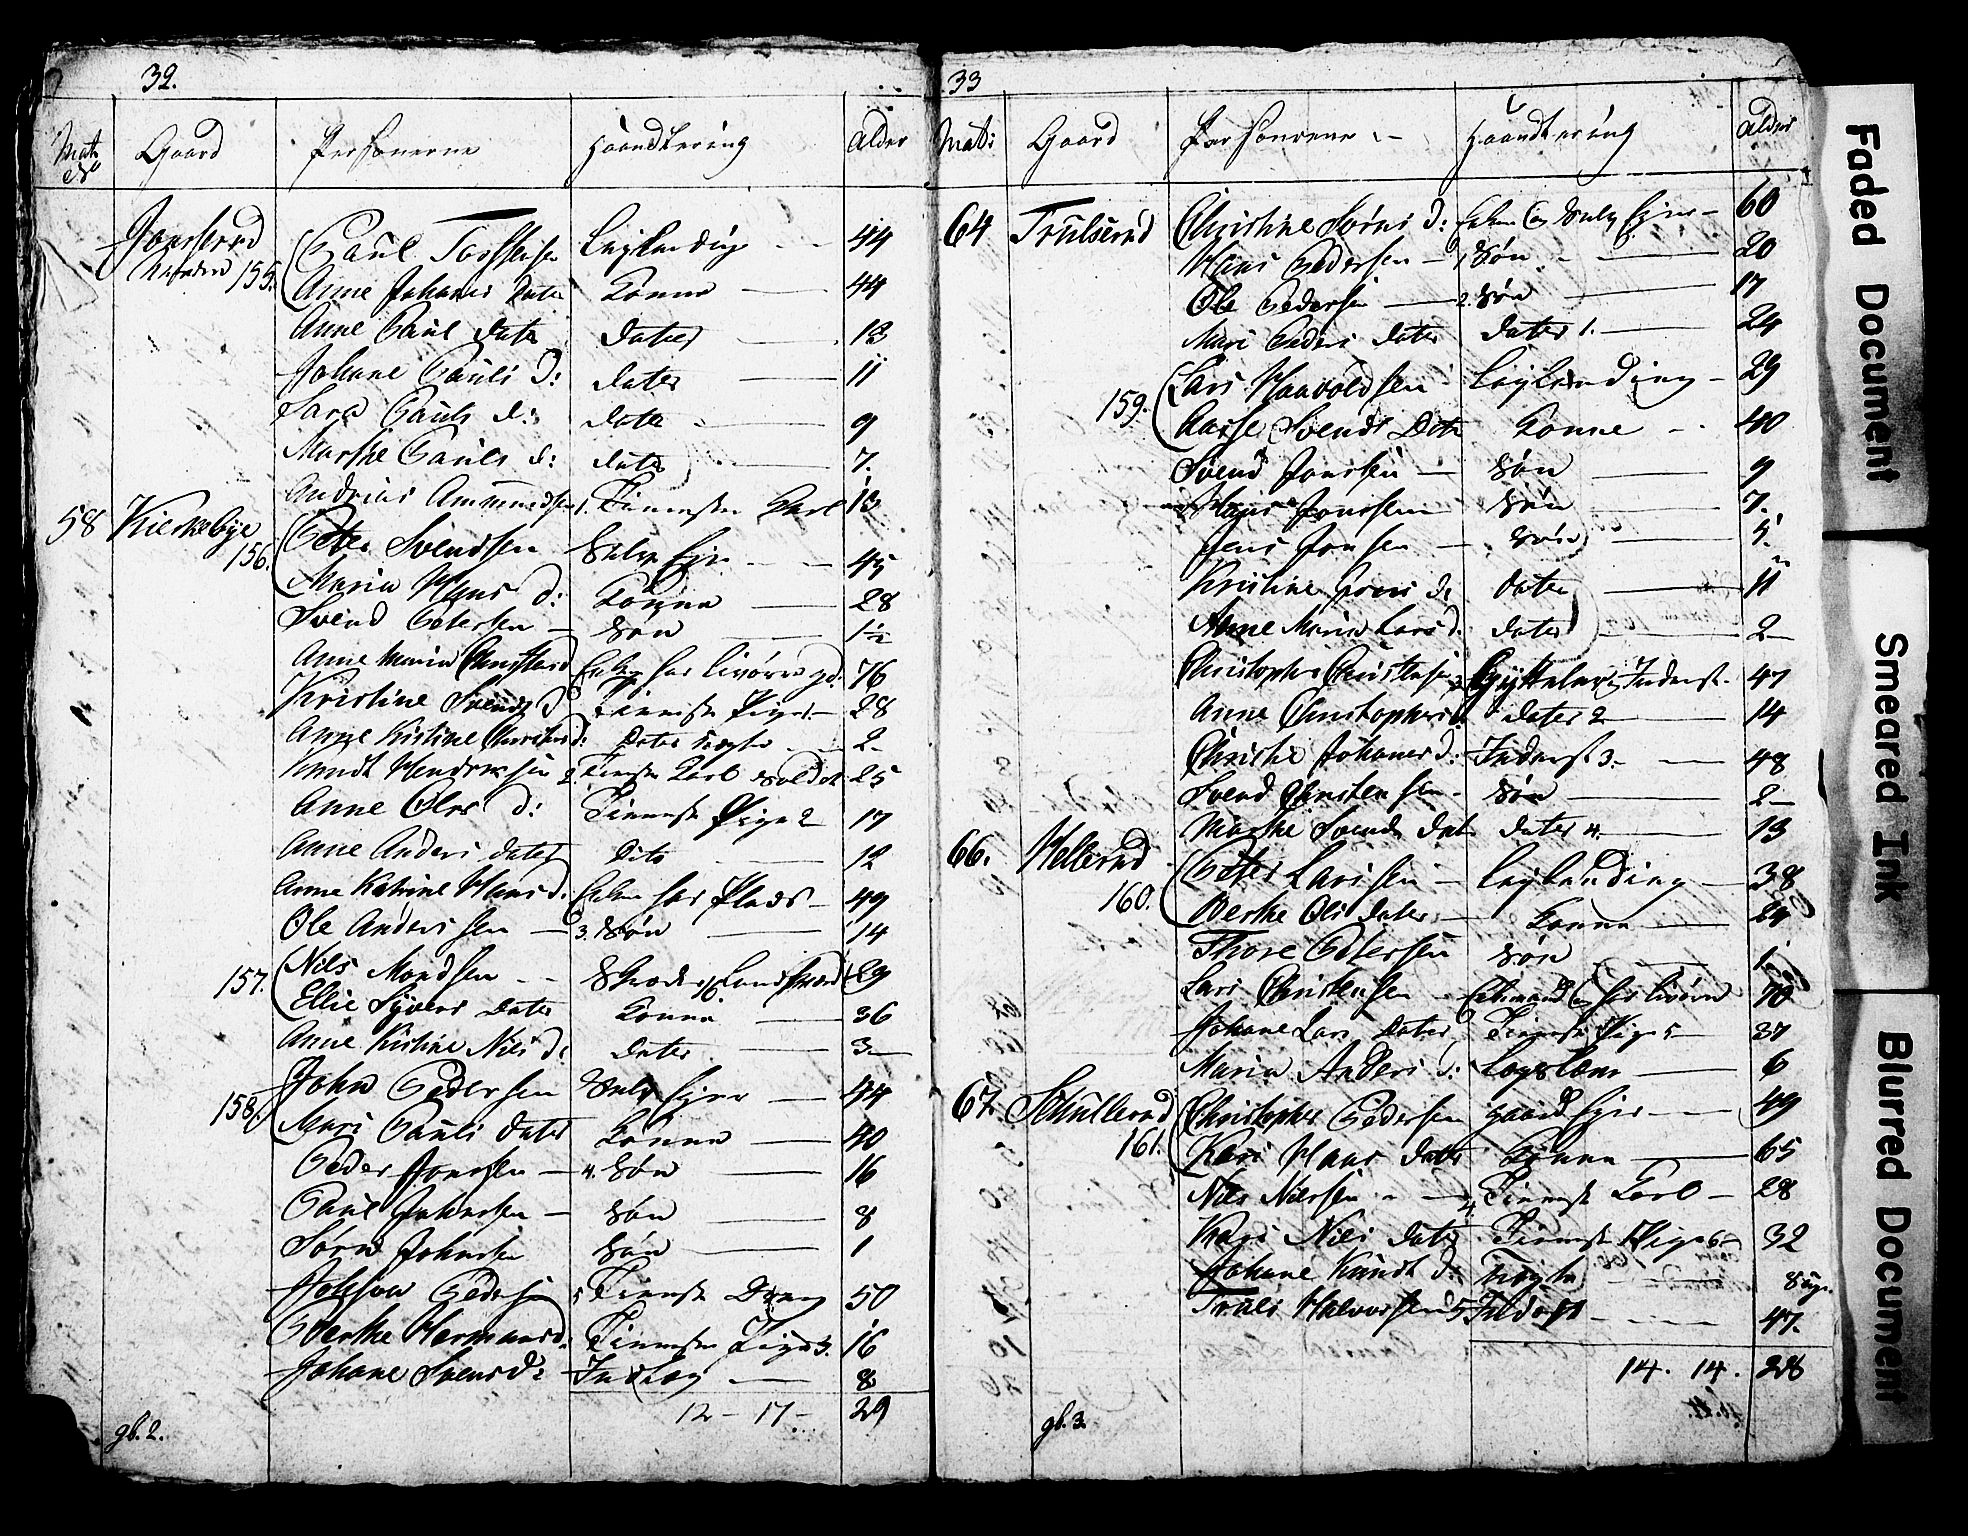 32.
Matr No Gaard Personerne Haandtering Alder
Jonsrud Paul Torstensen Leylending 44
155. Anne Johanes Dater Konne 44
Anne Paul dater dater 13
Johane Pauls d: dater 11
Sara Pauls d: dater 9
Marthe Pauls d: dater 7.
Andrias Ammundsen 1. Tieneste Karl 13
58 Kierkebye 156. Peter Svendsen Selv Ejer 45
Maria Hans d: Konne 28
Svend Petersen Søn 1½
Anne Maria 76
Kristine Svends d Tieneste Pige 1 28
Anne Kristine d: Dater 2
Knudt Hendriksen 2 Tieneste Karl Soldat 25
Anne Oles d: Tieneste Pige 2 17
Anne Anders dater Dito 12
Anne Katrine Hans d: Enke har Plads 49
Ole Andersen 3. Søn 14
157. Nils Mondsen 29
Ellie Syvers Dater Konne 36
Anne Kistine Nils d: dater 3
158. John Pedersen Selv Ejer 44
Mari Pauls dater Konne 40
Peder Jonssen 4. Søn 16
Paul Johnsen Søn 8
Sørn Johnsen Søn 1
Pedersen 5 Tieneste Dreng 50
Berthe Hermans d: Tieneste Pige 3. 16
Johane Svens d: 8
12 - 17 - 29
gb. 2.
33
Matr: Gaard Personerne Haandtering Alder
64 Trulserud Christine Sørns d: Enke og Selv Ejer 60
Hans Pedersen 1 Søn 20
Ole Pedersen 2. Søn 17
Mari Peders dater dater 1. 24
159. Lars Haavoldsen Leylending 29
Aasse Svends Dater Konne 40
Svend Jonssen Søn 9
Hans Jonssen Søn 7.
Jens Jonsen Søn 5.
Kristine Jons d: dater 11
Anne Maria Lars d: dater 2
Christopher Christensen 3 Inderst 47
Anne Christophers d: dater 2 14
Christie Johanes d: Inderst 3. 48
Svend Christensen Søn 2
Marthe Svends dat dater 4. 13
66. Kellerud 160. Peter Larssen Leylending 38
Berthe Ols dater Konne 24
Thore Petersen Søn 1
Lars Christensen Enkemand og har livøre 70
Johane Lars Dater Tieneste Pige 5 37
Maria Anders d: Leyelem 6
67. Skullerud 161. Christopher Pedersen gaard Ejer 49
Kari Hans dater Konne 65
Nils Nilssen 4. Tieneste Karl 28
Kari Nils dater Tieneste Pige 6 32
Johane Knudt d: 8 uger
Truls Halvorssen 5 Inderst 47.
14. 14. 28
gb. 3.
Faded Document
Smeared Ink
Blurred Document